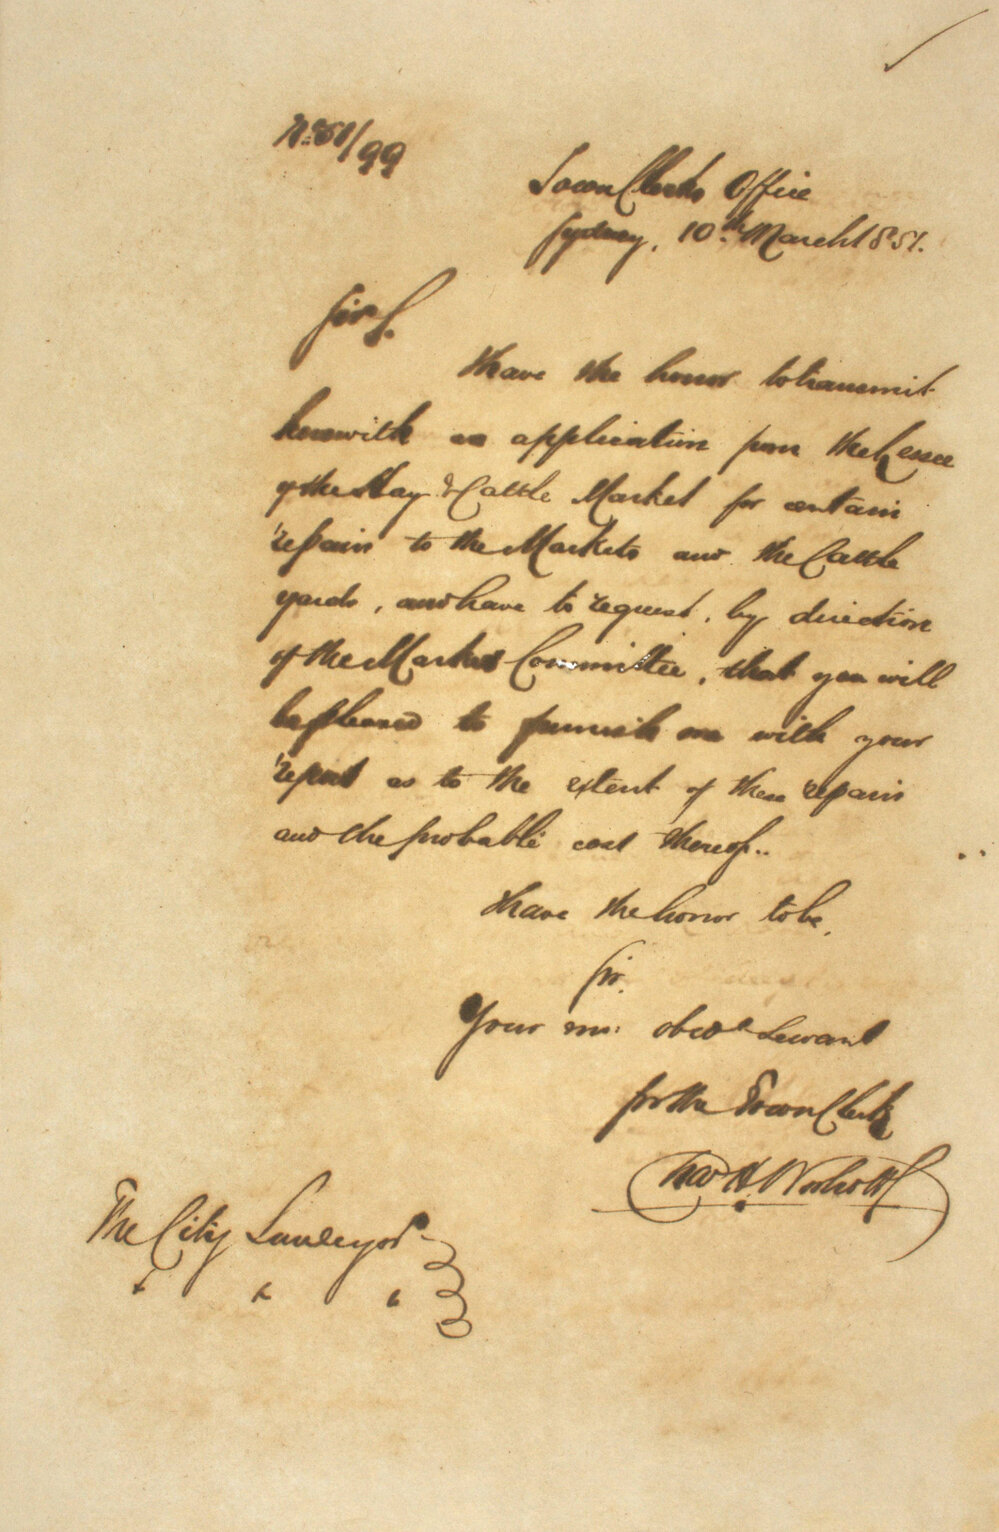 No. 51/99
Town Clerks Office
Sydney, 10th March 1851.
Sir,
I have the honor to transmit
herewith an application from the Lessee
of the Hay & Cattle Market for certain
repairs to the Markets and the Cattle
yards, and have to request, by direction
of the Market Committee, that you will
be pleased to furnish me with your
report as to the extent of these repairs
and the probable cost thereof..
I have the honor to be,
Sir,
Your mo: obedt Servant
for the Town Clerk
H.
The City Surveyor